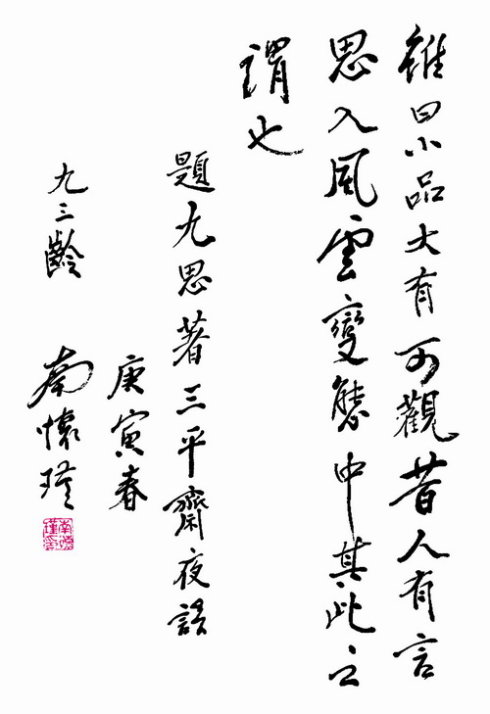 雖曰小品大有可觀昔人有言
思入風雲變態中其此之
謂也
題九思著三平齋夜語
庚寅春
九三齡
南懷瑾